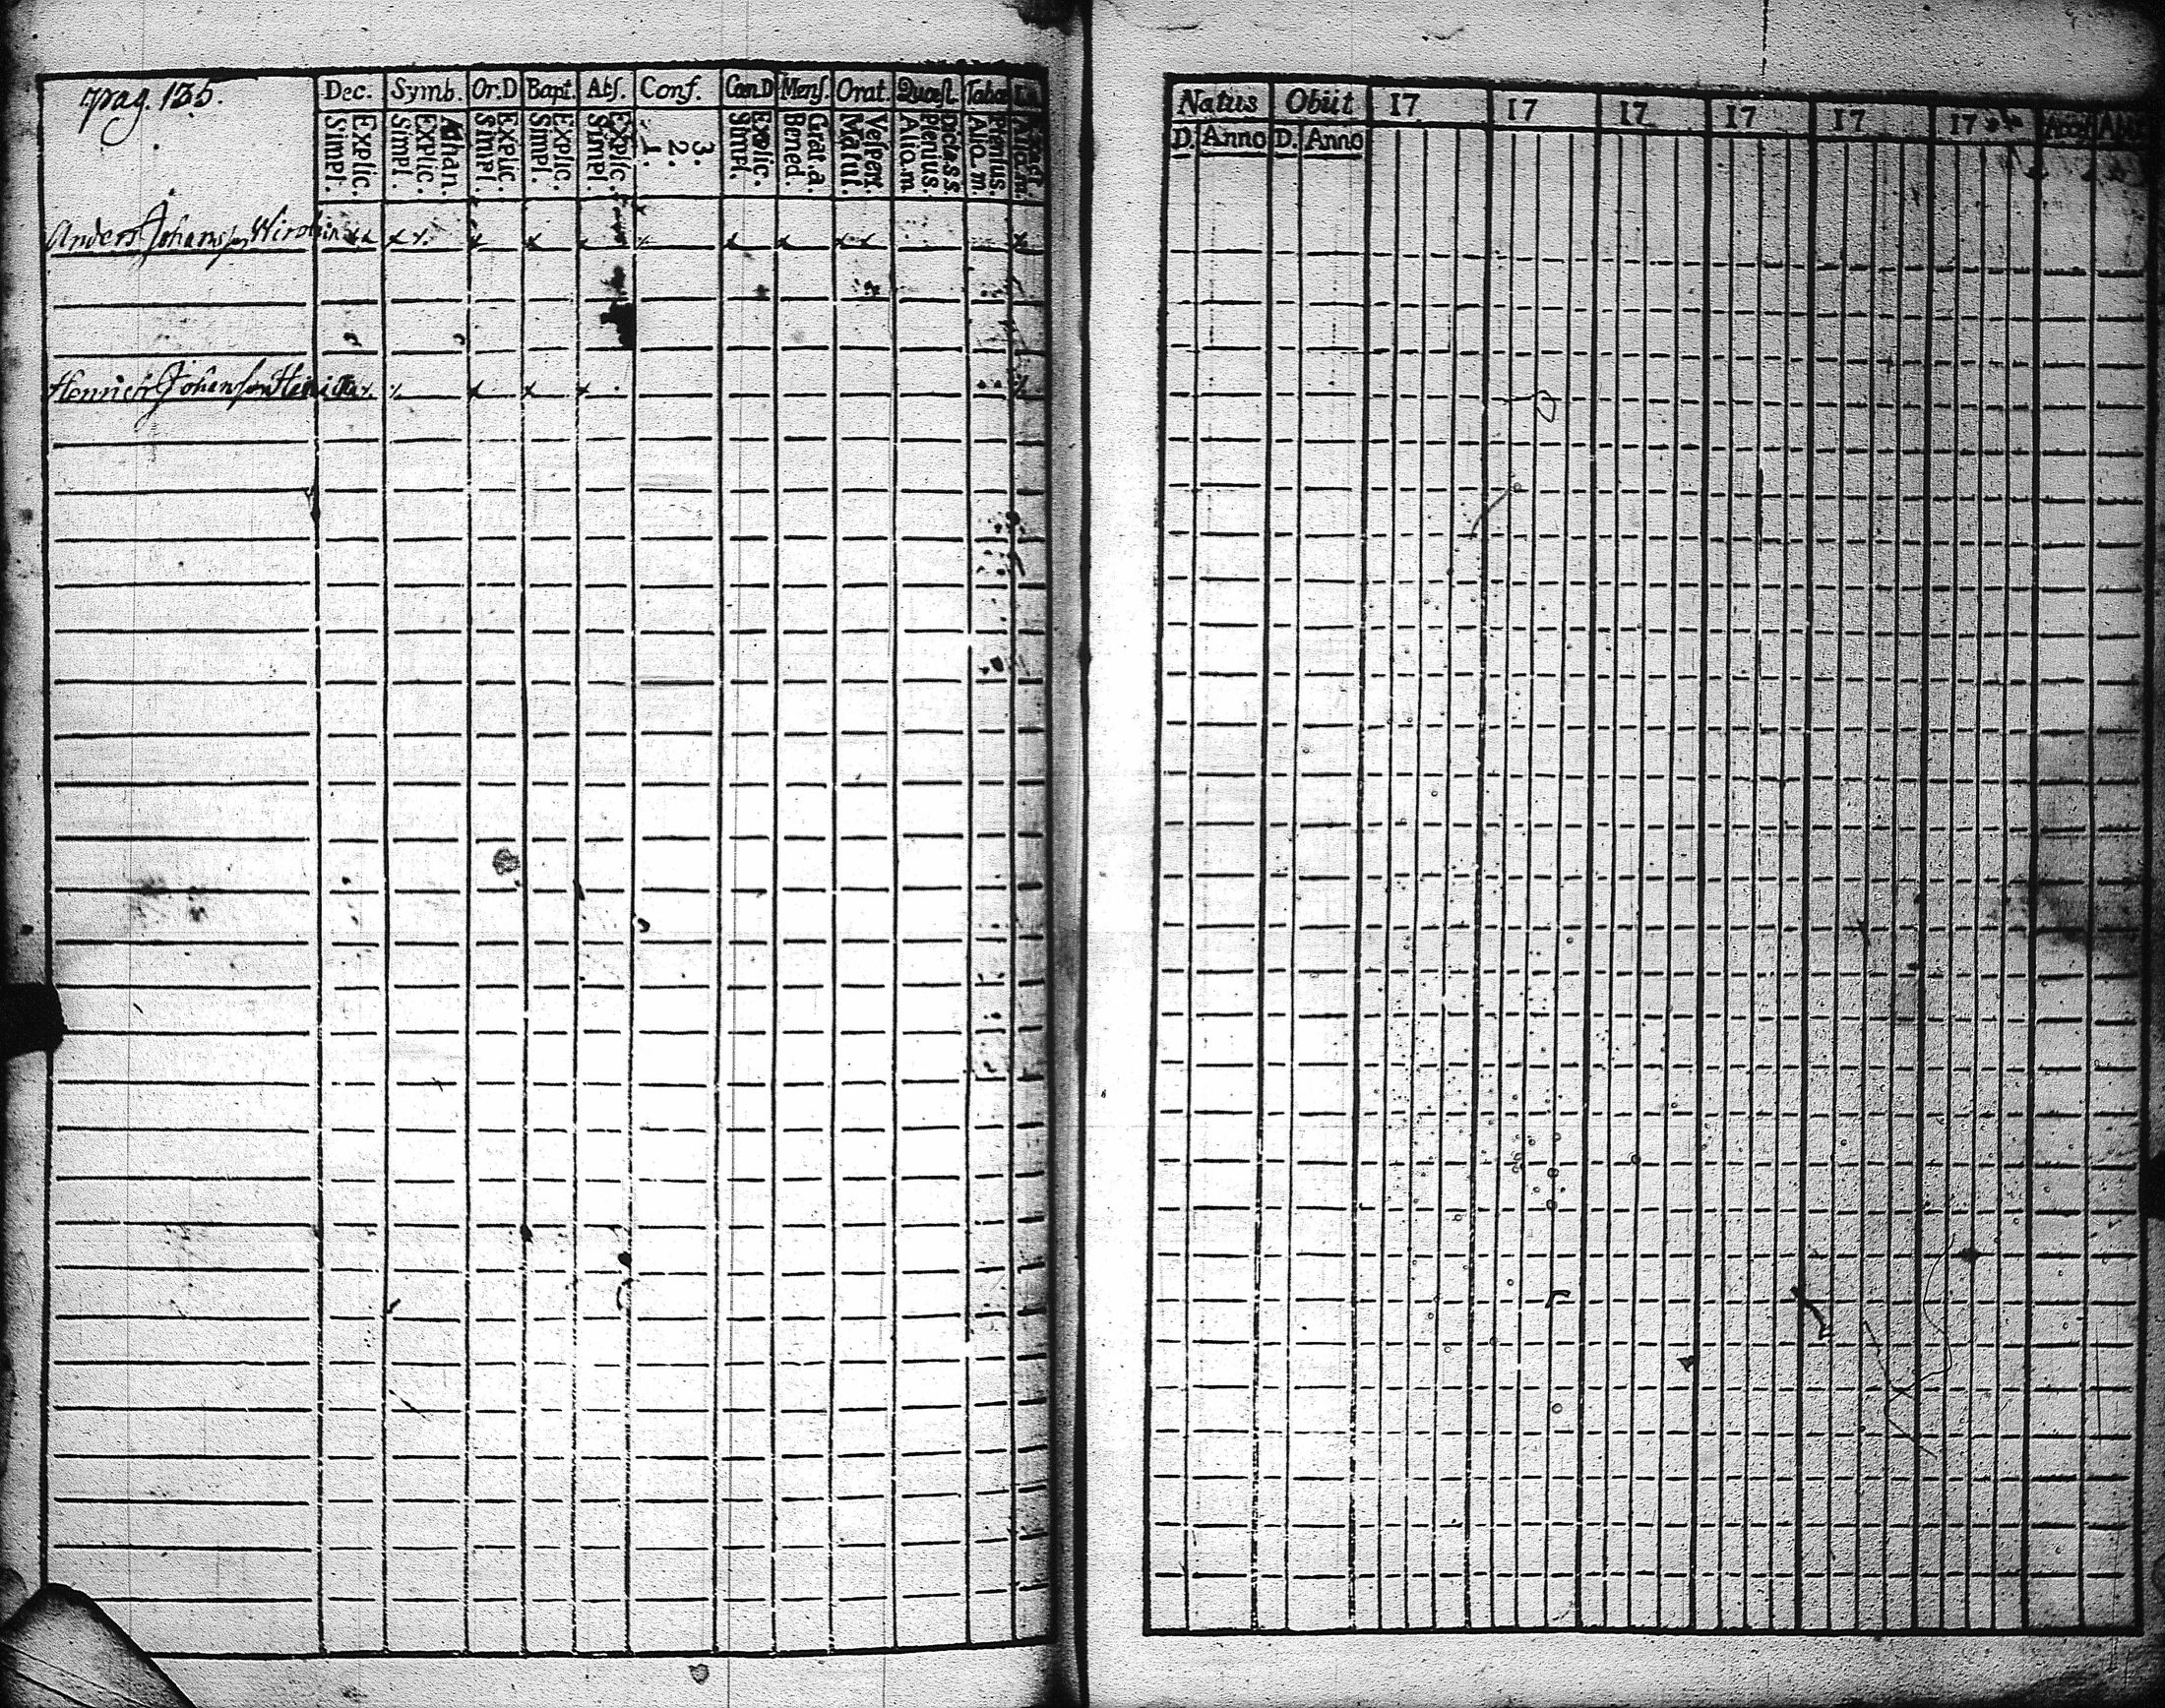 pag. 135.
Dec. Symb. Or.D Bapt. Abs. Conf. Can.D Mens. Orat. Quæst. Taba
Explic. Simpl. Athan. Explic. Simpl. Explic. Simpl. Explic. Simpl. Explic. Simpl. 3. 2. 1. Explic. Simpl. Grat. a. Bened. Vesper. Matut. Dicta s.s. Plenius. Alio. m Plenius Alio. m.
Anders Johansson
Henrich Johansson
Natus Obiit 17 17 17 17 17 17
D. Anno D. Anno